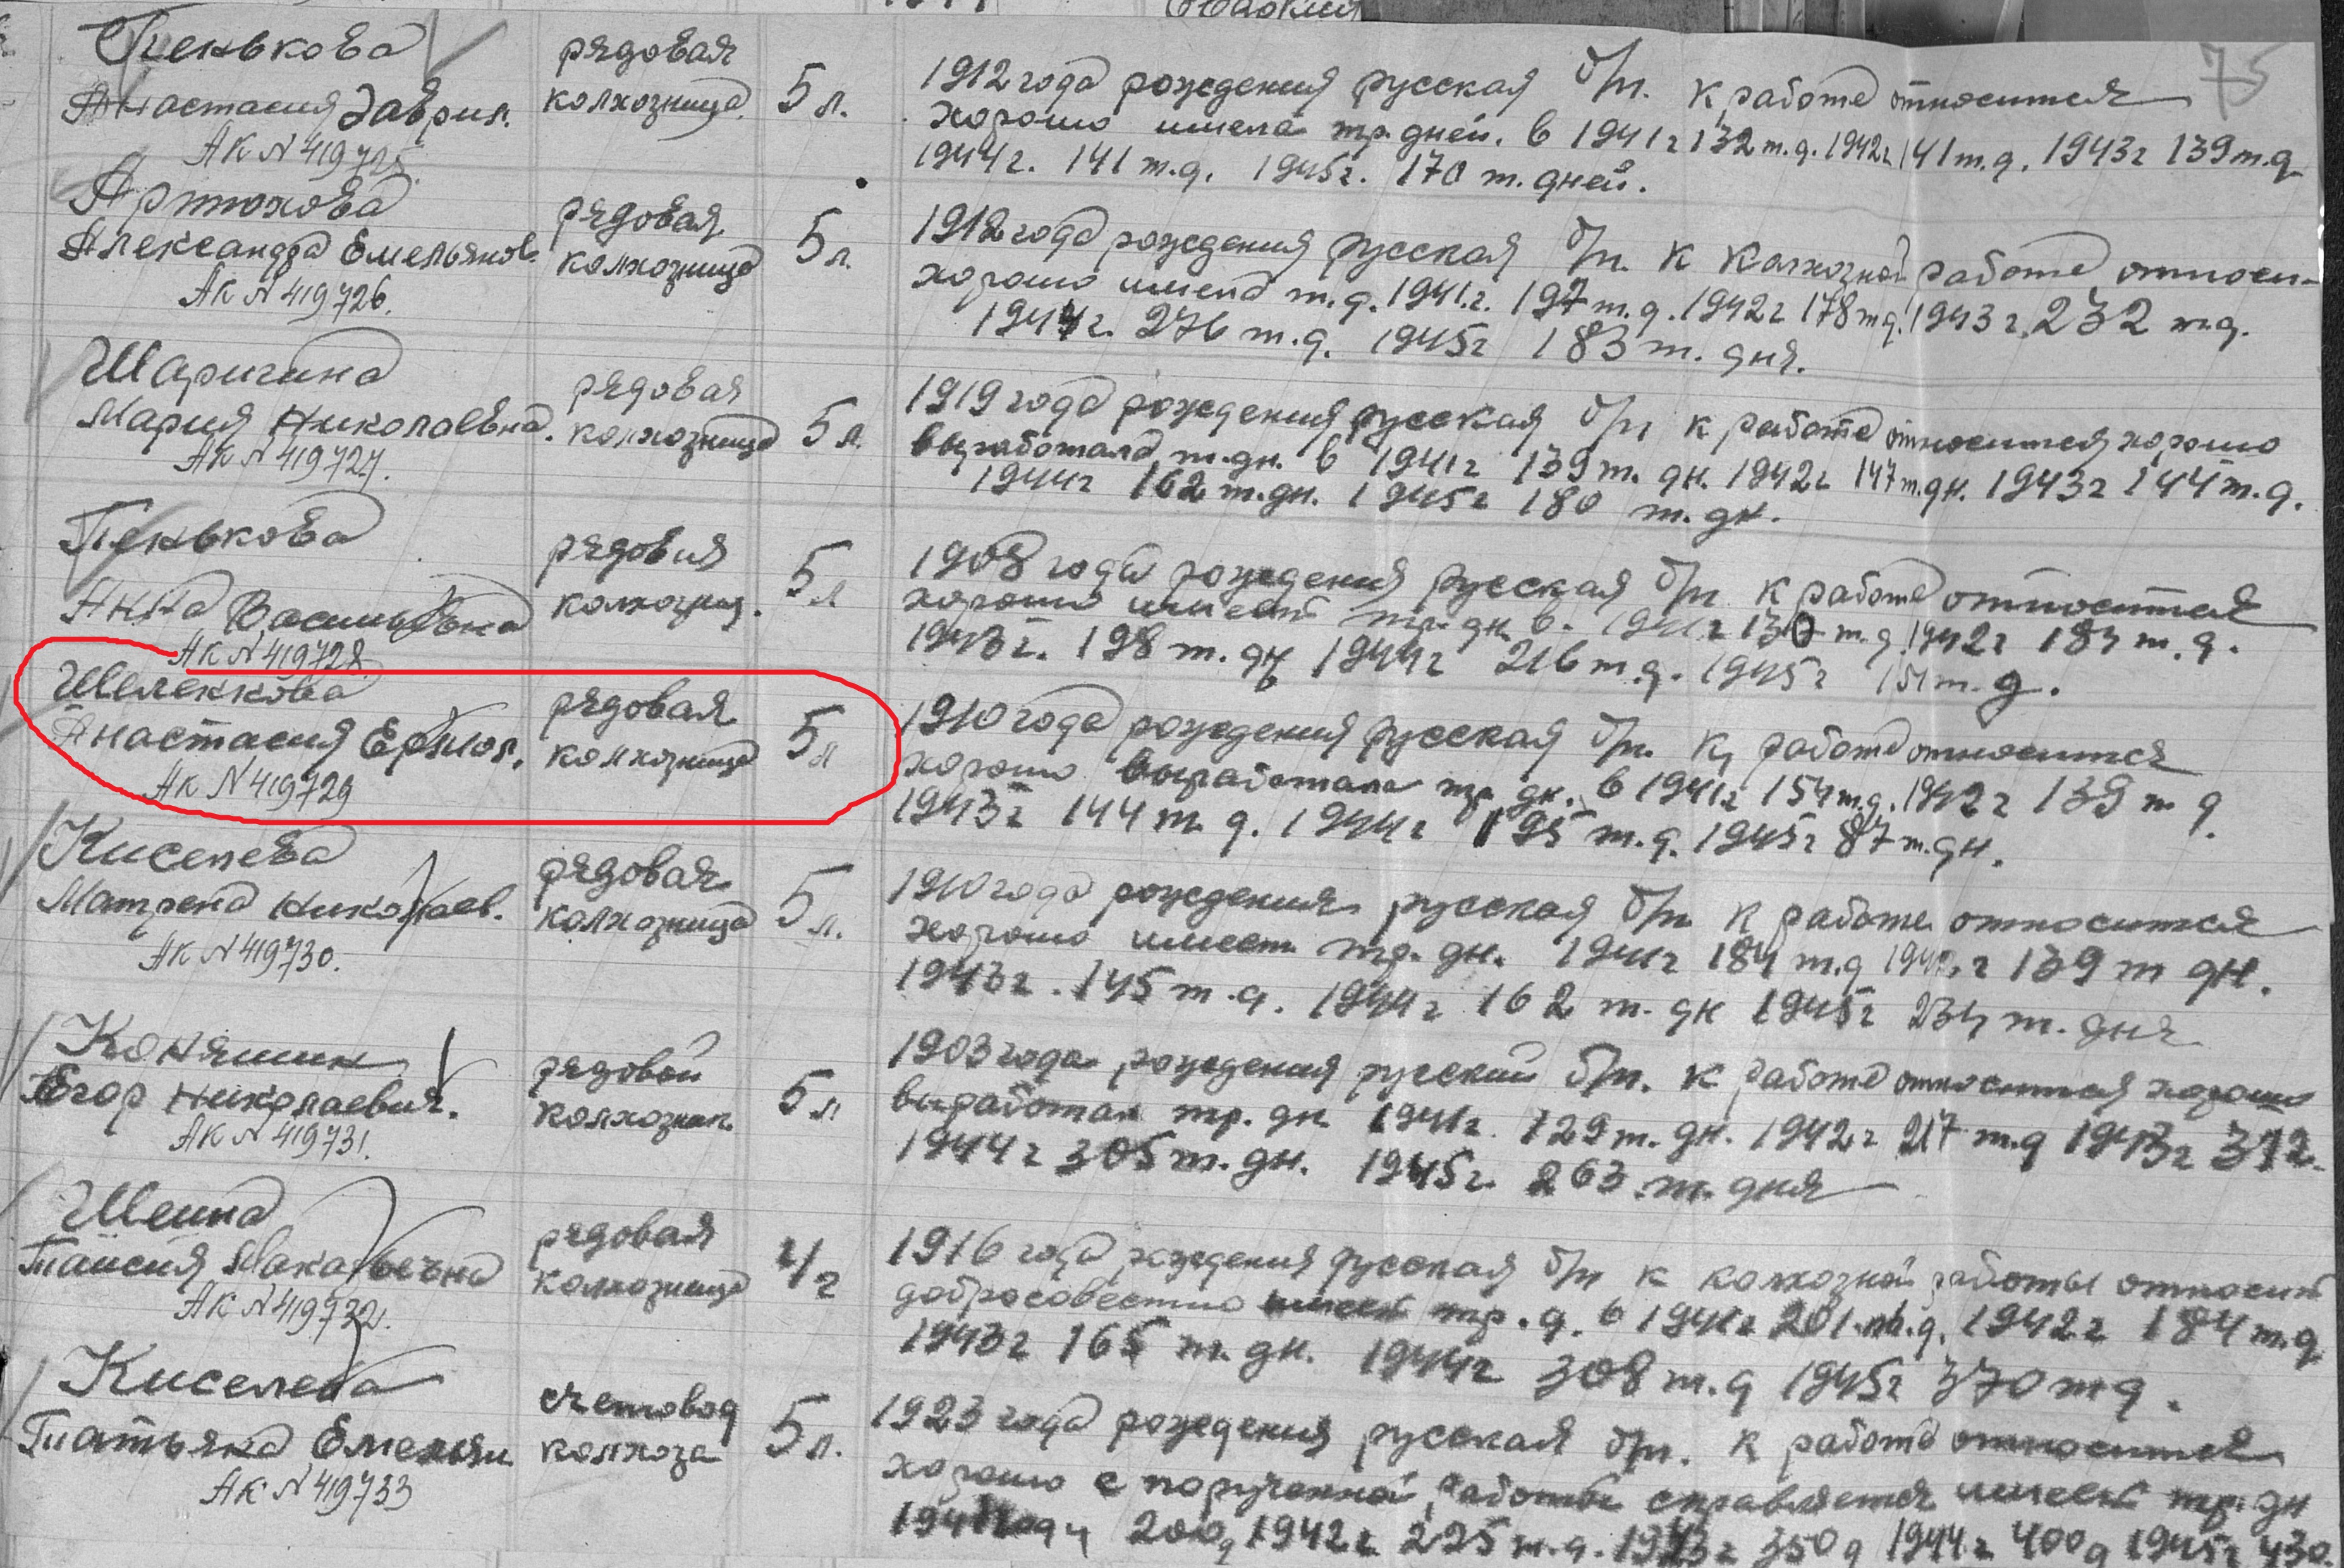 75
Пенькова
Анастасия Гаврил.
АК N 419725.
рядовая
колхозница.
5 л.
1912 года рождения русская б/п. к работе относится
хорошо имела тр. дней. в 1941 г 132 т.д. 1942 г 141 т.д. 1943 г 139 т.д
1944 г. 141 т.д. 1945 г. 170 т. дней.
Артюхова
Александра Емельянов.
АК N 419726.
рядовая
колхозница
5 л.
1912 года рождения русская б/п. к колхозной работе относи-
хорошо имела т.д. 1941 г. 197 т.д. 1942 г 178 т д. 1943 г. 232 т.д.
1944 г. 276 т.д. 1945 г 183 т. дня.
Шаригина
Мария Николаевна.
АК N 419727.
рядовая
колхозница
5 л.
1919 года рождения русская б/п к работе относится хорошо
выработала т.дн. в 1941 г 139 т. дн. 1942 г 147 т.дн. 1943 г 144 т.д.
1944 г 162 т.дн. 1945 г 180 т. дн.
Пенькова
Анна Васильевна
АК N 419728.
рядовая
колхозниц.
5 л
1908 года рождения русская б/п к работе относится
хорошо имеет тр. дн в. 1941 г 130 т.д 1942 г 184 т.д.
1943 г. 198 т. дн 1944 г 216 т.д. 1945 г 151 т.д.
Шеленкова
Анастасия Ермол.
АК N 419729
рядовая
колхозница
5 л
1910 года рождения русская б/п. к работе относится
хорошо выработала тр. дн. в 1941 г 154 т.д. 1942 г 139 т д
1943 г 144 т.д. 1944 г 195 т.д. 1945 г 87 т.дн.
Киселева
Матрена Николаев.
АК N 419730.
рядовая
колхозница
5 л.
1910 года рождения русская б/п к работе относится
хорошо имеет тр. дн. 1941 г 184 т.д 1942 г 139 т дн.
1943 г. 145 т.д. 1944 г 162 т. дн 1945 г 234 т. дня
Коняшин
Егор Николаевич.
АК N 419731.
рядовой
колхозник.
5 л
1903 года рождения русский б/п. к работе относится хорошо
выработал тр. дн 1941 г. 129 т. дн. 1942 г 217 т.д 1943 г 312.
1944 г 305 т. дн. 1945 г. 263 т. дня
Шеина
Таисия Макарьевна
АК N 419732.
рядовая
колхозница
ч/г
1916 года рождения русская б/п к колхозной работы относит
добросовестно имеет тр. д. в 1941 г 201 т.д. 1942 г 184 т.д
1943 г 165 т. дн. 1944 г 308 т.д 1945 г 370 т д.
Киселева
Татьяна Емельян
АК N 419733
счетовод
колхоза
5 л.
1923 года рождения русская б/п. к работе относится
хорошо с порученной работой справляется имеет тр. дн
200д 1942 г 225 т.д. 1943 г 350 д 1944 г 400 д 1945 г 430